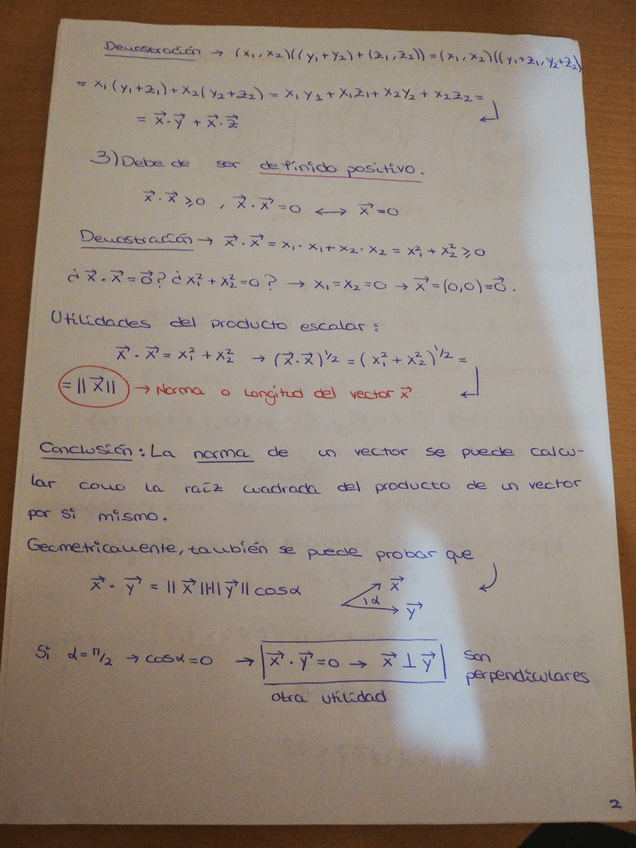 Demostración → (x₁, x₂)((y₁+y₂)+(z₁, z₂)) = (x₁, x₂)((y₁+z₁, y₂+z₂)
= x₁(y₁+z₁)+x₂(y₂+z₂) = x₁y₁+x₁z₁+x₂y₂+x₂z₂ =
= x⃗·y⃗ + x⃗·z⃗
3) Debe de ser definido positivo.
x⃗·x⃗ ≥ 0 , x⃗·x⃗ = 0 ⟷ x⃗ = 0
Demostración → x⃗·x⃗ = x₁·x₁+x₂·x₂ = x₁²+x₂² ≥ 0
¿x⃗·x⃗ = 0⃗? ¿x₁²+x₂² = 0? → x₁=x₂=0 → x⃗=(0,0)=0⃗.
Utilidades del producto escalar:
x⃗·x⃗ = x₁²+x₂² → (x⃗·x⃗)^1/2 = (x₁²+x₂²)^1/2 =
= ||x⃗|| → Norma o longitud del vector x⃗
Conclusión: La norma de un vector se puede calcu-
lar como la raíz cuadrada del producto de un vector
por si mismo.
Geometricamente, también se puede probar que
x⃗·y⃗ = ||x⃗||·||y⃗|| cosα x⃗
α y⃗
Si α=π/2 → cosα=0 → x⃗·y⃗=0 → x⃗⊥y⃗ son
perpendiculares
otra utilidad
2